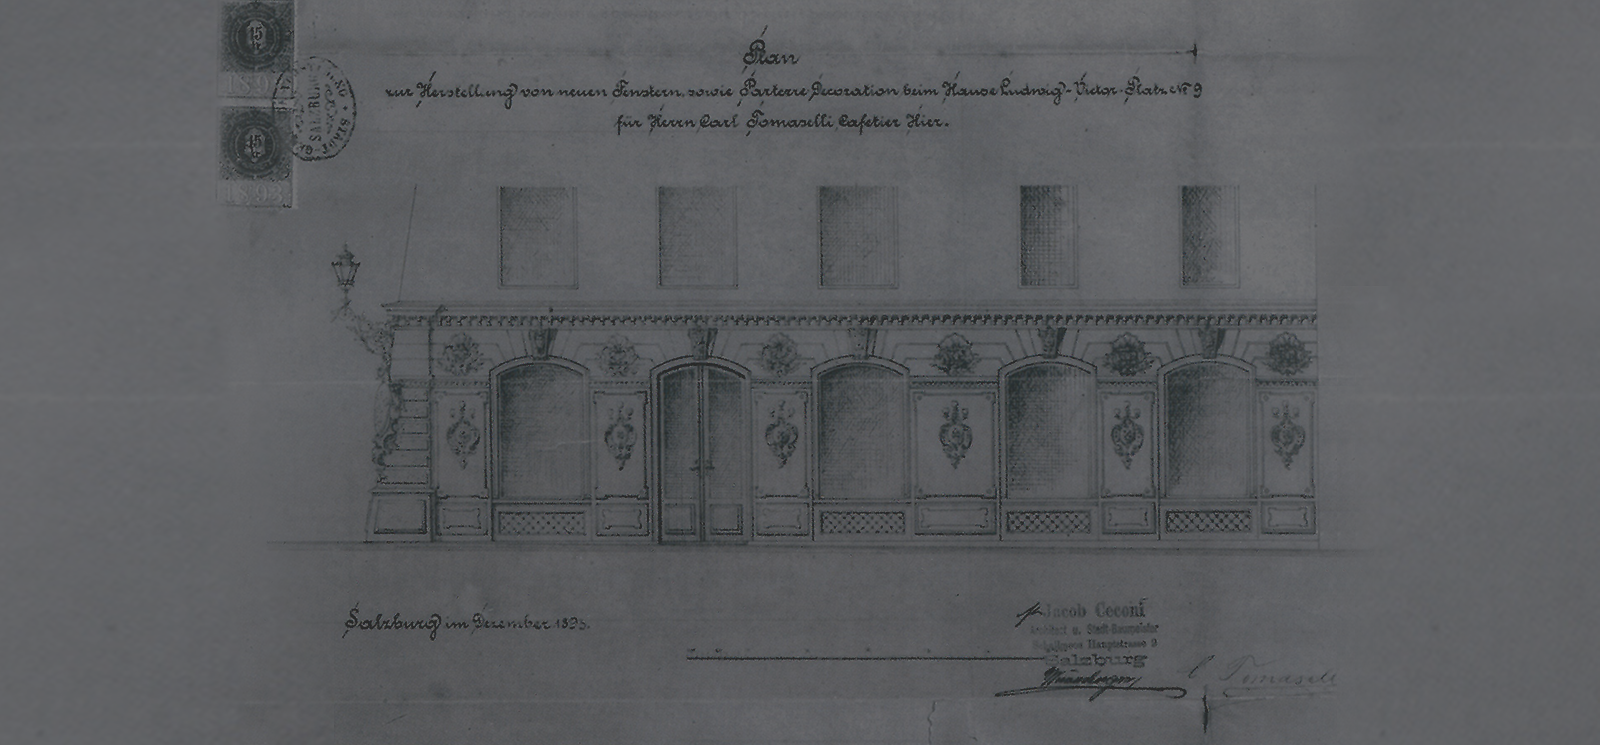 15
189
15
1893
SALZBURG
Plan
zur Herstellung von neuen Fenstern, sowie Parterre Decoration beim Hause Ludwig-Victor-Platz № 9
für Herrn Carl Tomaselli Cafetier Hier.
Salzburg im Dezember 1893.
Jacob Ceconi
Architect u. Stadt-Baumeister
Hauptstrasse
Salzburg
C. Tomaselli